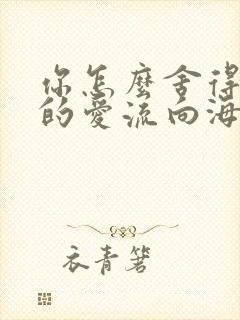 你怎麼舍得
的愛流向海
衣青箬